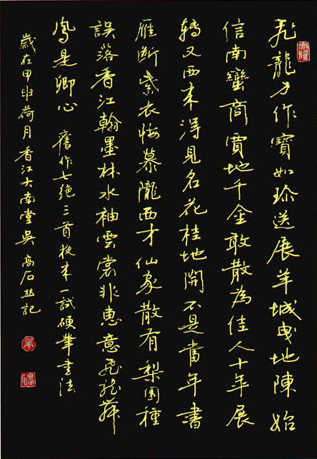 飛龍乃作寶如珍送展羊城曳地陳始
信南蠻商賈地千金敢散為佳人十年展
轉又西来得見名花桂地開不是當年書
雁断紫衣慕隴西才仙家散有梨園種
誤落香江翰墨林水袖雲裳非惠意飛龍舞
鳳是卿心 舊作七绝三首 来一試硬筆書法
歲在甲申荷月香江大南堂吳高石並記